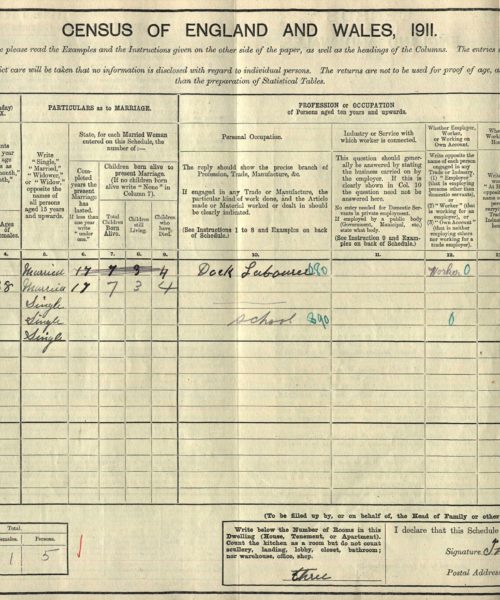 CENSUS OF ENGLAND AND WALES, 1911.
please read the Examples and the Instructions given on the other side of the paper, as well as the headings of the Columns. The entries
ict care will be taken that no information is disclosed with regard to individual persons. The returns are not to be used for proof of age, a
than the preparation of Statistical Tables.
PARTICULARS as to MARRIAGE.
PROFESSION or OCCUPATION
of Persons aged ten years and upwards.
Write
"Single,"
"Married,"
"Widower,"
or "Widow,"
opposite the
names of
all persons
aged 15 years
and upwards.
State, for each Married Woman
entered on this Schedule, the
number of :—
Com-
pleted
years the
present
Marriage
has
lasted.
If less than
one year
write
"under
one."
Children born alive to
present Marriage.
(If no children born
alive write "None" in
Column 7).
Total
Children
Born
Alive.
Children
still
Living.
Children
who
have
Died.
Personal Occupation.
The reply should show the precise branch of
Profession, Trade, Manufacture, &c.
If engaged in any Trade or Manufacture, the
particular kind of work done, and the Article
made or Material worked or dealt in should
be clearly indicated.
(See Instructions 1 to 8 and Examples on
back of Schedule.)
Industry or Service with
which worker is connected.
This question should gener-
ally be answered by stating
the business carried on by
the employer. If this is
clearly shown in Col. 10
the question need not be
answered here.
No entry needed for Domestic Ser-
vants in private employment.
If employed by a public body
(Government, Municipal, etc.)
state what body.
(See Instruction 9 and Exam-
ples on back of Schedule.)
Whether Employer,
Worker,
or Working on
Own Account.
Write opposite the
name of each person
engaged in any
Trade or Industry,
(1) "Employer"
(that is employing
persons other than
domestic servants),
or
(2) "Worker" (that
is working for an
employer), or
(3) "Own Account"
(that is neither
employing others
nor working for a
trade employer).
4. 5. 6. 7. 8. 9. 10. 11. 12.
Married 17 7 3 4 Dock Labourer Worker 0
8 Married 17 7 3 4
Single
Single school 390 0
Single
(To be filled up by, or on behalf of, the Head of Family or other
Total.
Females. Persons.
1 5
Write below the Number of Rooms in this
Dwelling (House, Tenement, or Apartment).
Count the kitchen as a room but do not count
scullery, landing, lobby, closet, bathroom;
nor warehouse, office, shop.
three
I declare that this Schedule
Signature
Postal Address